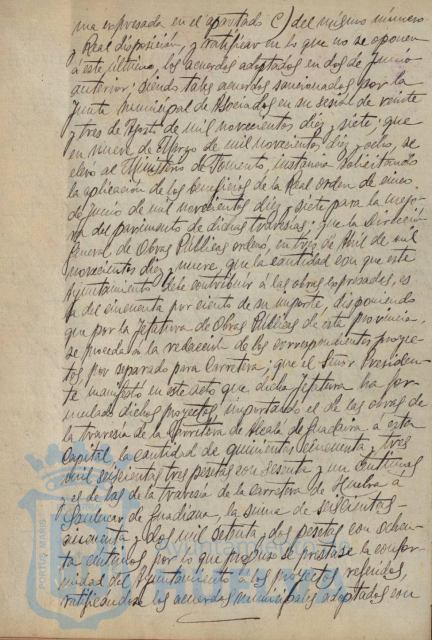 ma expresada en el apartado C) del mismo número
y Real disposición, y ratificar en lo que no se oponen
á este último, los acuerdos adoptados en dos de Junio
anterior; siendo tales acuerdos sancionados por la
Junta Municipal de Asociados en su sesión de veinte
y tres de Agosto de mil novecientos diez y siete; que
en nueve de Marzo de mil novecientos diez y ocho, se
elevó al Ministerio de Fomento, instancia solicitando
la aplicación de los beneficios de la Real orden de cinco
de Junio de mil novecientos diez y siete para la mejo-
ra del pavimento de dichas travesías; que la Dirección
General de Obras Públicas ordenó, en tres de Abril de mil
novecientos diez y nueve, que la cantidad con que este
Ayuntamiento debe contribuir á las obras expresadas, es
la del cincuenta por ciento de su importe, disponiendo
que por la Jefatura de Obras Públicas de esta provincia,
se proceda á la redacción de los correspondientes proyec-
tos por separado para Carretera; que el Señor Presiden-
te manifestó en este acto que dicha Jefatura ha for-
mulado dichos proyectos, importando el de las obras de
la travesía de la Carretera de Alcalá de Guadaira á esta
Capital, la cantidad de quinientas cincuenta y tres
mil seiscientas tres pesetas con sesenta y un céntimos
y el de las de la travesía de la Carretera de Huelva á
Sanlúcar de Guadiana, la suma de seiscientas
cincuenta y dos mil setenta y dos pesetas con ochen-
ta céntimos por lo que precisa se prestase la confor-
midad del Ayuntamiento á los proyectos referidos,
ratificándose los acuerdos municipales adoptados con
PORTUS MARIS
Ayuntamiento de
HUELVA